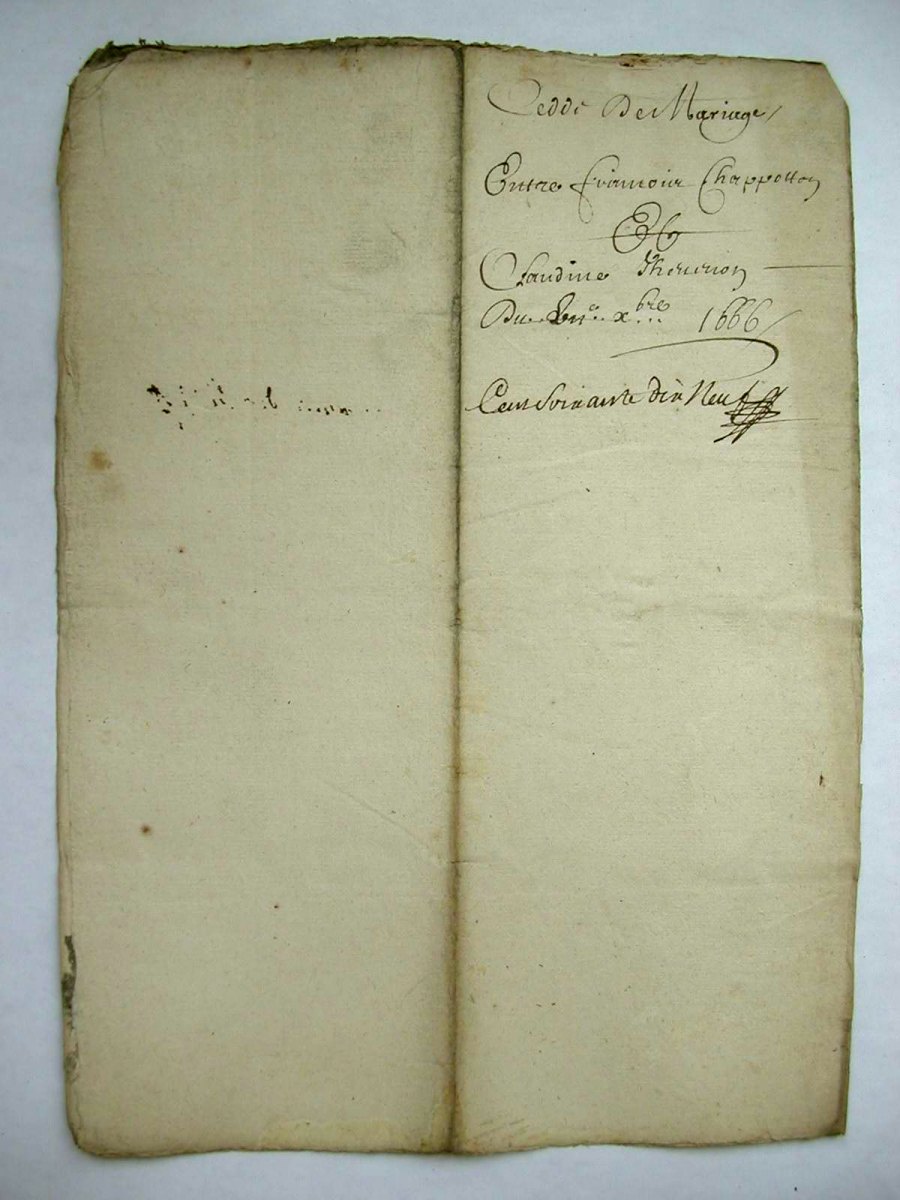 Cedde De Mariage /
Entre francois Chappotton
Et
Claudine Thouvenon
Du xbre 1666 /
Cent Soixante dix Neuf